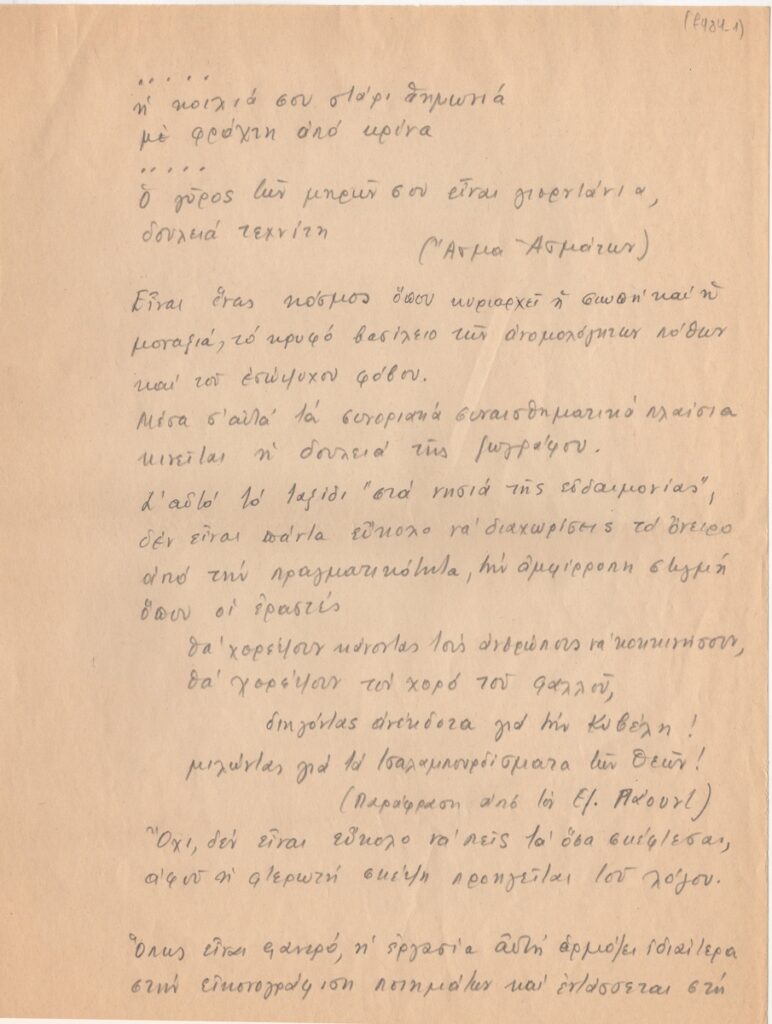 .....
ἡ κοιλιά σου στάρι θημωνιά
μὲ φράχτη ἀπό κρίνα
.....
Ὁ γῦρος τῶν μηρῶν σου εἶναι γιορντάνια,
δουλειά τεχνίτη
(Ἆσμα Ἀσμάτων)
Εἶναι ἕνας κόσμος ὅπου κυριαρχεῖ ἡ σιωπή καί ἡ
μοναξιά, τό κρυφό βασίλειο τῶν ἀνομολόγητων πόθων
καί τοῦ ἐσώψυχου φόβου.
Μέσα σ'αὐτά τά συνοριακά συναισθηματικά πλαίσια
κινεῖται ἡ δουλειά τῆς ζωγράφου.
Σ'αὐτό τό ταξίδι "στά νησιά τῆς εὐδαιμονίας",
δέν εἶναι πάντα εὔκολο νά διαχωρίσεις τό ὄνειρο
ἀπό τήν πραγματικότητα, τήν ἀμφίρροπη στιγμή
ὅπου οἱ ἐραστές
θά χορέψουν κάνοντας τούς ἀνθρώπους νά κοκκινήσουν,
θά χορέψουν τόν χορό τοῦ φαλλοῦ,
διηγόντας ἀνέκδοτα γιά τήν Κυβέλη!
μιλώντας γιά τά τσαλαμπουρδίσματα τῶν Θεῶν!
(Παράφραση ἀπό τόν Εζ. Πάουντ)
Ὄχι, δέν εἶναι εὔκολο νά πεῖς τά ὅσα σκέφτεσαι,
ἀφοῦ ἡ φτερωτή σκέψη προηγεῖται τοῦ λόγου.
Ὅπως εἶναι φανερό, ἡ ἐργασία αὐτή ἁρμόζει ἰδιαίτερα
στήν εἰκονογράφιση ποιημάτων καί ἐντάσσεται στή